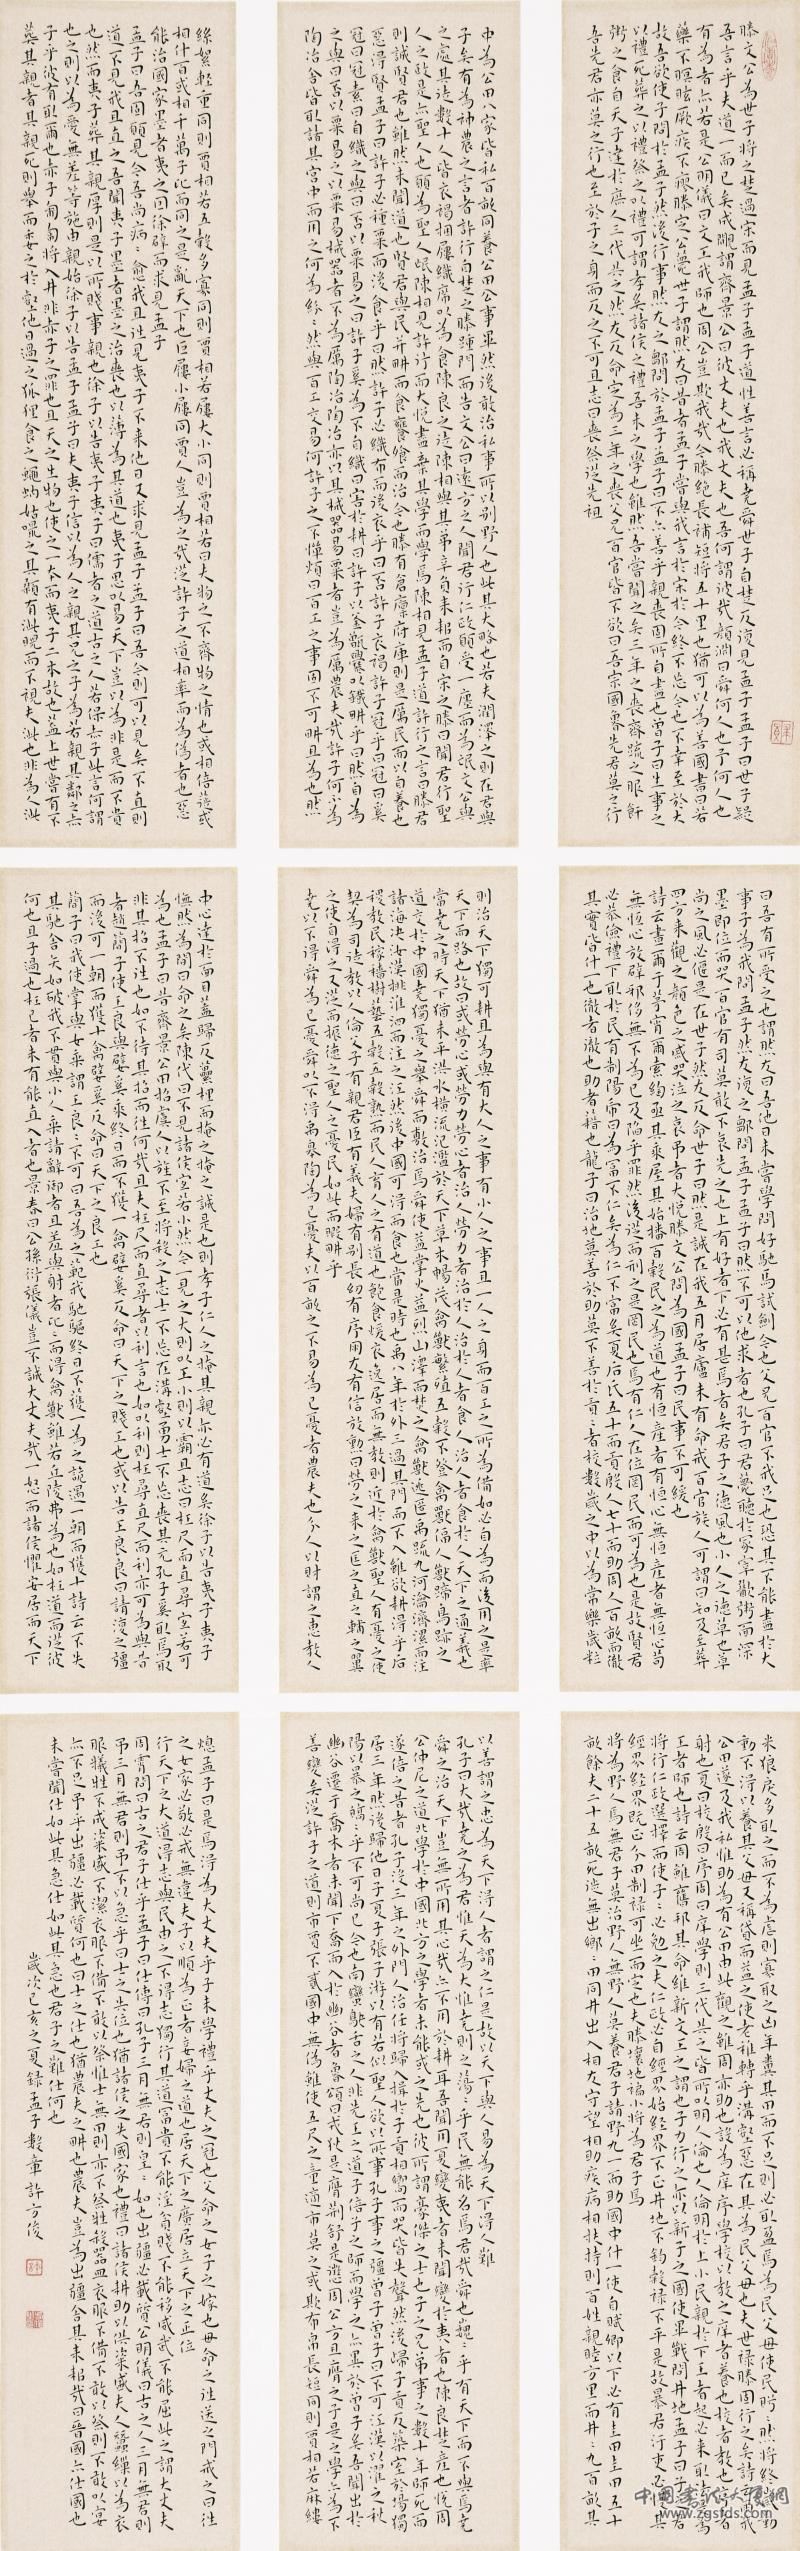 滕文公為世子將之楚過宋而見孟子孟子道性善言必稱堯舜世子自楚反復見孟子孟子曰世子疑
吾言乎夫道一而已矣成覸謂齊景公曰彼丈夫也我丈夫也吾何謂彼哉顏淵曰舜何人也予何人也
有為者亦若是公明儀曰文王我師也周公豈欺我哉今滕絕長補短將五十里也猶可以為善國書曰若
藥不瞑眩厥疾不瘳滕定公薨世子謂然友曰昔者孟子嘗與我言於宋於今終不忘今也不幸至於大
故吾欲使子問於孟子然後行事然友之鄒問於孟子孟子曰不亦善乎親喪固所自盡也曾子曰生事之
以禮死葬之以禮祭之以禮可謂孝矣諸侯之禮吾未之學也雖然吾嘗聞之矣三年之喪齊疏之服飦
粥之食自天子達於庶人三代共之然友反命定為三年之喪父兄百官皆不欲曰吾宗國魯先君莫之行
吾先君亦莫之行也至於子之身而反之不可且志曰喪祭從先祖
曰吾有所受之也謂然友曰吾他日未嘗學問好馳馬試劍今也父兄百官不我足也恐其不能盡於大
事子為我問孟子然友復之鄒問孟子孟子曰然不可以他求者也孔子曰君薨聽於冢宰歠粥面深
墨即位而哭百官有司莫敢不哀先之也上有好者下必有甚焉者矣君子之德風也小人之德草也草
尚之風必偃是在世子然友反命世子曰然是誠在我五月居廬未有命戒百官族人可謂曰知及至葬
四方來觀之顏色之戚哭泣之哀弔者大悅滕文公問為國孟子曰民事不可緩也
詩云晝爾于茅宵爾索綯亟其乘屋其始播百穀民之為道也有恒產者有恒心無恒產者無恒心苟
無恒心放辟邪侈無不為已及陷乎罪然後從而刑之是罔民也焉有仁人在位罔民而可為也是故賢君
必恭儉禮下取於民有制陽虎曰為富不仁矣為仁不富矣夏后氏五十而貢殷人七十而助周人百畝而徹
其實皆什一也徹者徹也助者藉也龍子曰治地莫善於助莫不善於貢貢者校數歲之中以為常樂歲粒
米狼戾多取之而不為虐則寡取之凶年糞其田而不足則必取盈焉為民父母使民盻盻然將終歲勤
動不得以養其父母又稱貸而益之使老稚轉乎溝壑惡在其為民父母也夫世祿滕固行之矣詩云雨我
公田遂及我私惟助為有公田由此觀之雖周亦助也設為庠序學校以教之庠者養也校者教也序者
射也夏曰校殷曰序周曰庠學則三代共之皆所以明人倫也人倫明於上小民親於下有王者起必來取法是為
王者師也詩云周雖舊邦其命維新文王之謂也子力行之亦以新子之國使畢戰問井地孟子曰子之君
將行仁政選擇而使子子必勉之夫仁政必自經界始經界不正井地不鈞穀祿不平是故暴君汙吏必慢其
經界經界既正分田制祿可坐而定也夫滕壤地褊小將為君子焉
將為野人焉無君子莫治野人無野人莫養君子請野九一而助國中什一使自賦卿以下必有圭田圭田五十
畝餘夫二十五畝死徙無出鄉鄉田同井出入相友守望相助疾病相扶持則百姓親睦方里而井井九百畝其
中為公田八家皆私百畝同養公田公事畢然後敢治私事所以別野人也此其大略也若夫潤澤之則在君與
子矣有為神農之言者許行自楚之滕踵門而告文公曰遠方之人聞君行仁政願受一廛而為氓文公與
之處其徒數十人皆衣褐捆屨織席以為食陳良之徒陳相與其弟辛負耒耜而自宋之滕曰聞君行聖
人之政是亦聖人也願為聖人氓陳相見許行而大悅盡棄其學而學焉陳相見孟子道許行之言曰滕君
則誠賢君也雖然未聞道也賢者與民并耕而食饔飧而治今也滕有倉廩府庫則是厲民而以自養也
惡得賢孟子曰許子必種粟而後食乎曰然許子必織布而後衣乎曰否許子衣褐許子冠乎曰冠曰奚
冠曰冠素曰自織之與曰否以粟易之曰許子奚為不自織曰害於耕曰許子以釜甑爨以鐵耕乎曰然自為
之與曰否以粟易之以粟易械器者不為厲陶冶陶冶亦以其械器易粟者豈為厲農夫哉且許子何不為
陶冶舍皆取諸其宮中而用之何為紛紛然與百工交易何許子之不憚煩曰百工之事固不可耕且為也然
則治天下獨可耕且為與有大人之事有小人之事且一人之身而百工之所為備如必自為而後用之是率
天下而路也故曰或勞心或勞力勞心者治人勞力者治於人治於人者食人治人者食於人天下之通義也
當堯之時天下猶未平洪水橫流氾濫於天下草木暢茂禽獸繁殖五穀不登禽獸偪人獸蹄鳥跡之
道交於中國堯獨憂之舉舜而敷治焉舜使益掌火益烈山澤而焚之禽獸逃匿禹疏九河瀹濟漯而注
諸海決汝漢排淮泗而注之江然後中國可得而食也當是時也禹八年於外三過其門而不入雖欲耕得乎后
稷教民稼穡樹藝五穀五穀熟而民人育人之有道也飽食煖衣逸居而無教則近於禽獸聖人有憂之使
契為司徒教以人倫父子有親君臣有義夫婦有別長幼有序朋友有信放勳曰勞之來之匡之直之輔之翼
之使自得之又從而振德之聖人之憂民如此而暇耕乎
堯以不得舜為己憂舜以不得禹皋陶為己憂夫以百畝之不易為己憂者農夫也分人以財謂之惠教人
以善謂之忠為天下得人者謂之仁是故以天下與人易為天下得人難
孔子曰大哉堯之為君惟天為大惟堯則之蕩蕩乎民無能名焉君哉舜也巍巍乎有天下而不與焉堯
舜之治天下豈無所用其心哉亦不用於耕耳吾聞用夏變夷者未聞變於夷者也陳良楚產也悅周
公仲尼之道北學於中國北方之學者未能或之先也彼所謂豪傑之士也子之兄弟事之數十年師死而
遂倍之昔者孔子沒三年之外門人治任將歸入揖於子貢相嚮而哭皆失聲然後歸子貢反築室於場獨
居三年然後歸他日子夏子張子游以有若似聖人欲以所事孔子事之彊曾子曾子曰不可江漢以濯之秋
陽以暴之皜皜乎不可尚已今也南蠻鴃舌之人非先王之道子倍子之師而學之亦異於曾子矣吾聞出於
幽谷遷于喬木者未聞下喬木而入於幽谷者魯頌曰戎狄是膺荊舒是懲周公方且膺之子是之學亦為不
善變矣從許子之道則市賈不貳國中無偽雖使五尺之童適市莫之或欺布帛長短同則賈相若麻縷
絲絮輕重同則賈相若五穀多寡同則賈相若屨大小同則賈相若曰夫物之不齊物之情也或相倍蓰或
相什百或相千萬子比而同之是亂天下也巨屨小屨同賈人豈為之哉從許子之道相率而為偽者也惡
能治國家墨者夷之因徐辟而求見孟子
孟子曰吾固願見今吾尚病病愈我且往見夷子不來他日又求見孟子孟子曰吾今則可以見矣不直則
道不見我且直之吾聞夷子墨者墨之治喪也以薄為其道也夷子思以易天下豈以為非是而不貴
也然而夷子葬其親厚則是以所賤事親也徐子以告夷子夷子曰儒者之道古之人若保赤子此言何謂
也之則以為愛無差等施由親始徐子以告孟子孟子曰夫夷子信以為人之親其兄之子為若親其鄰之赤
子乎彼有取爾也赤子匍匐將入井非赤子之罪也且天之生物也使之一本而夷子二本故也蓋上世嘗有不
葬其親者其親死則舉而委之於壑他日過之狐狸食之蠅蚋姑嘬之其顙有泚睨而不視夫泚也非為人泚
中心達於面目蓋歸反虆梩而掩之掩之誠是也則孝子仁人之掩其親亦必有道矣徐子以告夷子夷子
憮然為間曰命之矣陳代曰不見諸侯宜若小然今一見之大則以王小則以霸且志曰枉尺而直尋宜若可
為也孟子曰昔齊景公田招虞人以旌不至將殺之志士不忘在溝壑勇士不忘喪其元孔子奚取焉取
非其招不往也如不待其招而往何哉且夫枉尺而直尋者以利言也如以利則枉尋直尺而利亦可為與昔
者趙簡子使王良與嬖奚乘終日而不獲一禽嬖奚反命曰天下之賤工也或以告王良良曰請復之彊
而後可一朝而獲十禽嬖奚反命曰天下之良工也
簡子曰我使掌與女乘謂王良良不可曰吾為之範我馳驅終日不獲一為之詭遇一朝而獲十詩云不失
其馳舍矢如破我不貫與小人乘請辭御者且羞與射者比比而得禽獸雖若丘陵弗為也如枉道而從彼
何也且子過也枉己者未有能直人者也景春曰公孫衍張儀豈不誠大丈夫哉一怒而諸侯懼安居而天下
熄孟子曰是焉得為大丈夫乎子未學禮乎丈夫之冠也父命之女子之嫁也母命之往送之門戒之曰往
之女家必敬必戒無違夫子以順為正者妾婦之道也居天下之廣居立天下之正位
行天下之大道得志與民由之不得志獨行其道富貴不能淫貧賤不能移威武不能屈此之謂大丈夫
周霄問曰古之君子仕乎孟子曰仕傳曰孔子三月無君則皇皇如也出疆必載質公明儀曰古之人三月無君則
弔三月無君則弔不以急乎曰士之失位也猶諸侯之失國家也禮曰諸侯耕助以供粢盛夫人蠶繅以為衣
服犧牲不成粢盛不潔衣服不備不敢以祭惟士無田則亦不祭牲殺器皿衣服不備不敢以祭則不敢以宴
亦不足弔乎出疆必載質何也曰士之仕也猶農夫之耕也農夫豈為出疆舍其耒耜哉曰晉國亦仕國也
未嘗聞仕如此其急仕如此其急也君子之難仕何也
歲次己亥之夏錄孟子數章許方俊
中國書法大展網
www.zgsfds.com